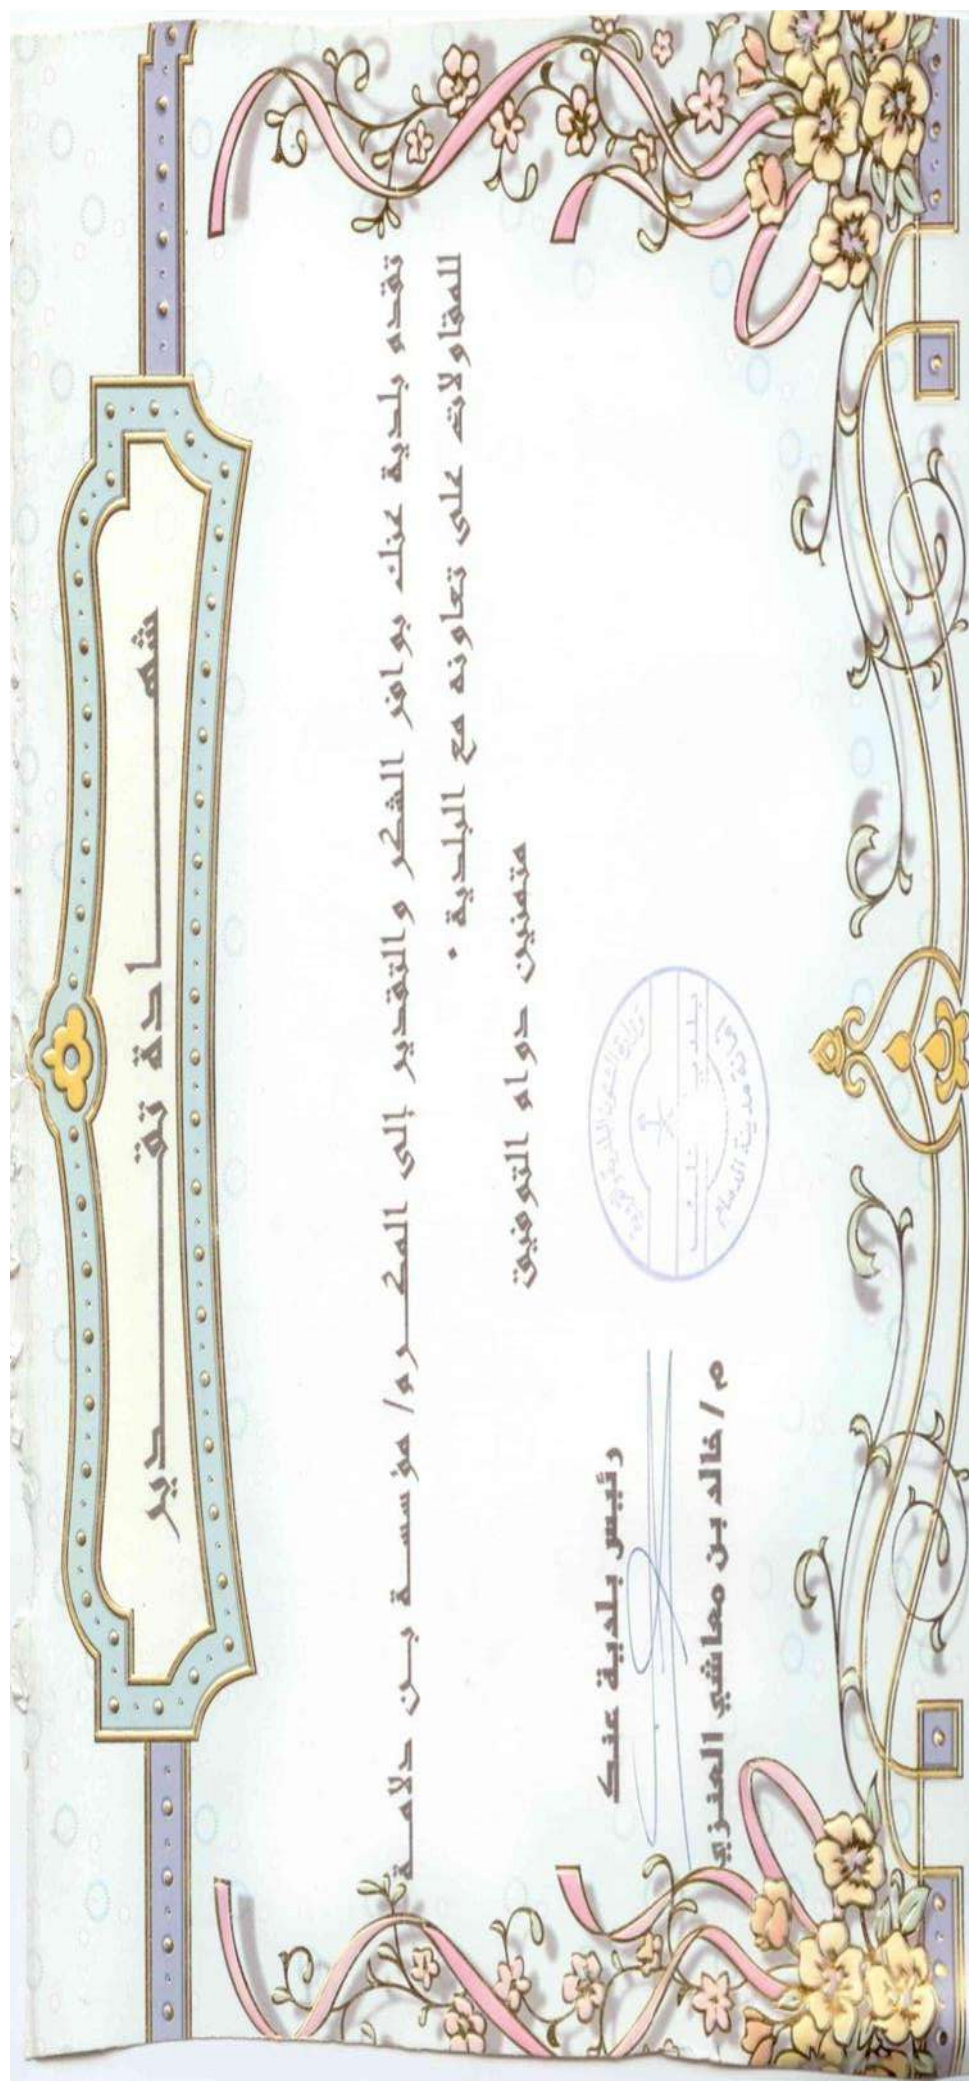 شهـــــــــادة تقـــــــــدير
تتقدم بلدية عنك بوافر الشكر والتقدير إلى المكــرم/ مؤسســة بــن دلامــة
للمقاولات على تعاونه مع البلدية .
متمنين دوام التوفيق
رئيس بلدية عنك
م/ خالد بن معاشي العنزي
وزارة الشئون البلدية والقروية
بلدية عنك